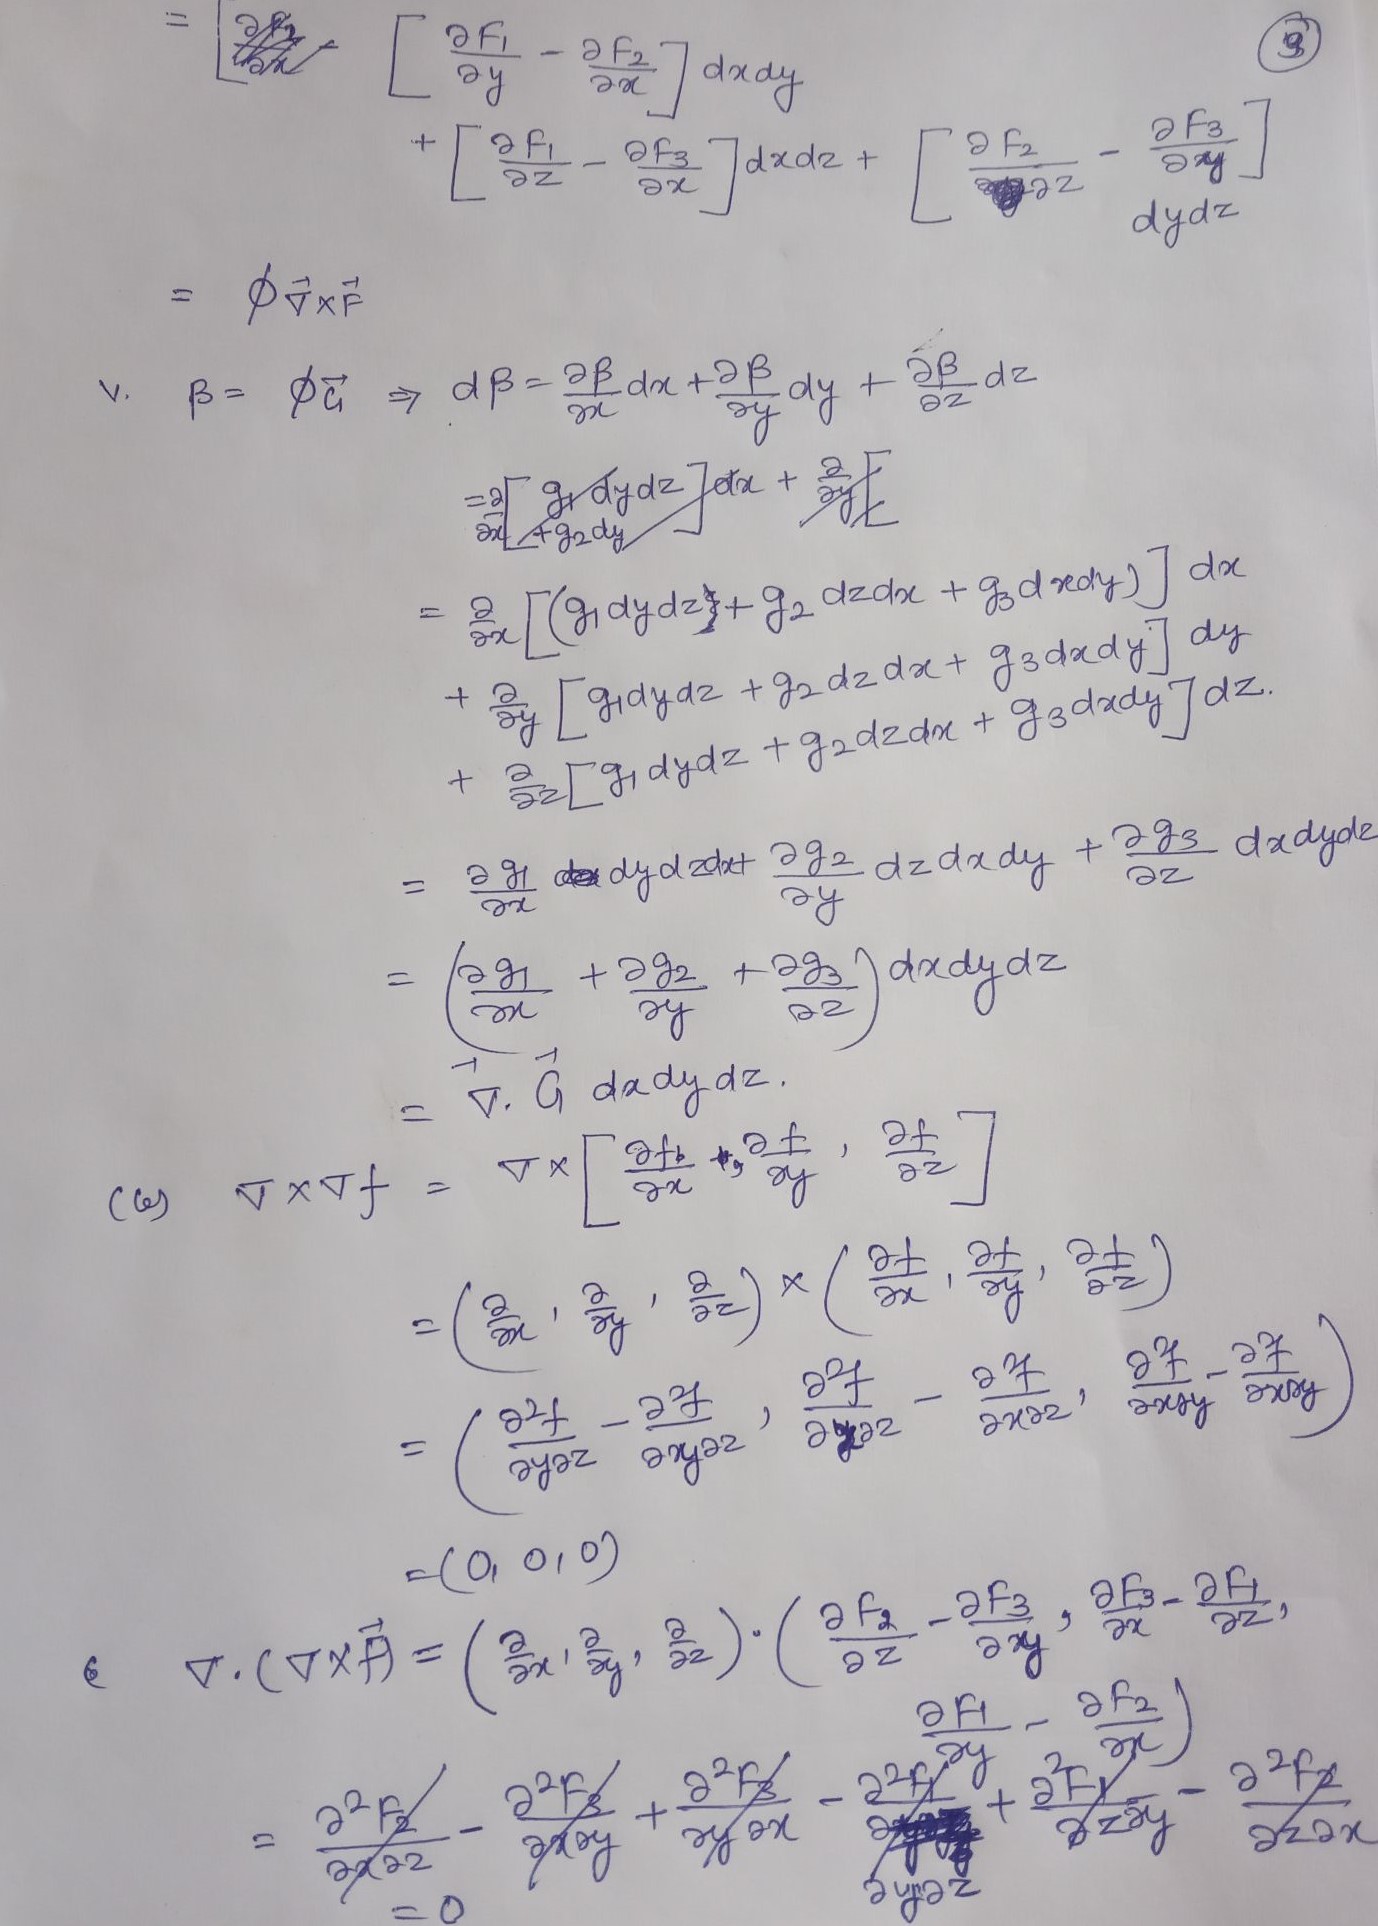 = [ [∂F₁/∂y − ∂F₂/∂x] dxdy
③
+ [∂F₁/∂z − ∂F₃/∂x] dxdz + [∂F₂/∂z − ∂F₃/∂y] dydz
= ϕ ∇⃗×F⃗
v. β = ϕG⃗ ⇒ dβ = ∂β/∂x dx + ∂β/∂y dy + ∂β/∂z dz
= ∂/∂x [g₁ dydz + g₂dy] dx + ∂/∂y [
= ∂/∂x [(g₁dydz + g₂ dzdx + g₃dxdy)] dx
+ ∂/∂y [g₁dydz + g₂dzdx + g₃dxdy] dy
+ ∂/∂z [g₁dydz + g₂dzdx + g₃dxdy] dz.
= ∂g₁/∂x dydzdx + ∂g₂/∂y dzdxdy + ∂g₃/∂z dxdydz
= (∂g₁/∂x + ∂g₂/∂y + ∂g₃/∂z) dxdydz
= ∇⃗. G⃗ dxdydz.
∇×∇f = ∇×[∂f/∂x, ∂f/∂y, ∂f/∂z]
= (∂/∂x, ∂/∂y, ∂/∂z) × (∂f/∂x, ∂f/∂y, ∂f/∂z)
= (∂²f/∂y∂z − ∂²f/∂y∂z, ∂²f/∂x∂z − ∂²f/∂x∂z, ∂²f/∂x∂y − ∂²f/∂x∂y)
= (0, 0, 0)
c ∇.(∇×F⃗) = (∂/∂x, ∂/∂y, ∂/∂z) · (∂F₂/∂z − ∂F₃/∂y, ∂F₃/∂x − ∂F₁/∂z,
∂F₁/∂y − ∂F₂/∂x)
= ∂²F₂/∂x∂z − ∂²F₃/∂x∂y + ∂²F₃/∂y∂x − ∂²F₁/∂y∂z + ∂²F₁/∂z∂y − ∂²F₂/∂z∂x
= 0